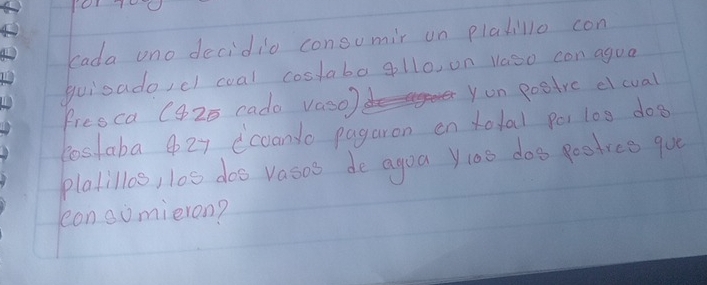 cada uno decidio consumir un platillo con
guisado, el cual costaba $110, un vaso con agua
fresca ($25 cada vaso) y un postre el cual
costaba $27 ¿cuanto pagaron en total por los dos
platillos, los dos vasos de agua y los dos postres que
consumieron?